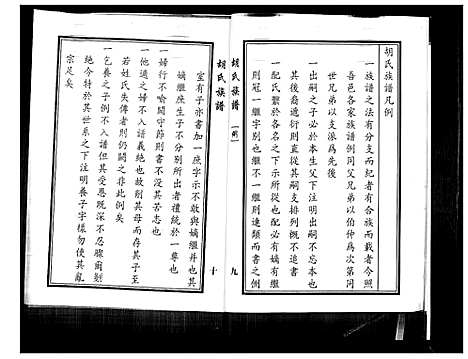 胡氏族譜凡例
一族譜之法有分支而紀者有合族而載者今照
吾邑各家族譜例同父兄弟以伯仲為次第同
世兄弟以支派為先後
一出嗣之子必於本生父下注明出嗣不忘本也
其後裔遞衍則直從其嗣支排列概不追溯
一配氏繫於各名之下示別也配必有嫡有繼
則冠一繼字別也繼不一則連類而書之側
九
胡氏族譜
胡氏族譜
十
室有子亦書加一庶字示不敢與嫡繼并也
嫡繼庶生子不分別所出者禮統於一尊也
一婦行不喻閫守節則書不沒其苦志也
一他適之婦不入譜義絕也故削其母而存其子
若姓氏失傳者則仍闕之非此例矣
一乞養之子例不入譜但其受恩既深不忍驟爾懸
絶今特於其世系之下注明養子字樣勿使其亂
宗足矣